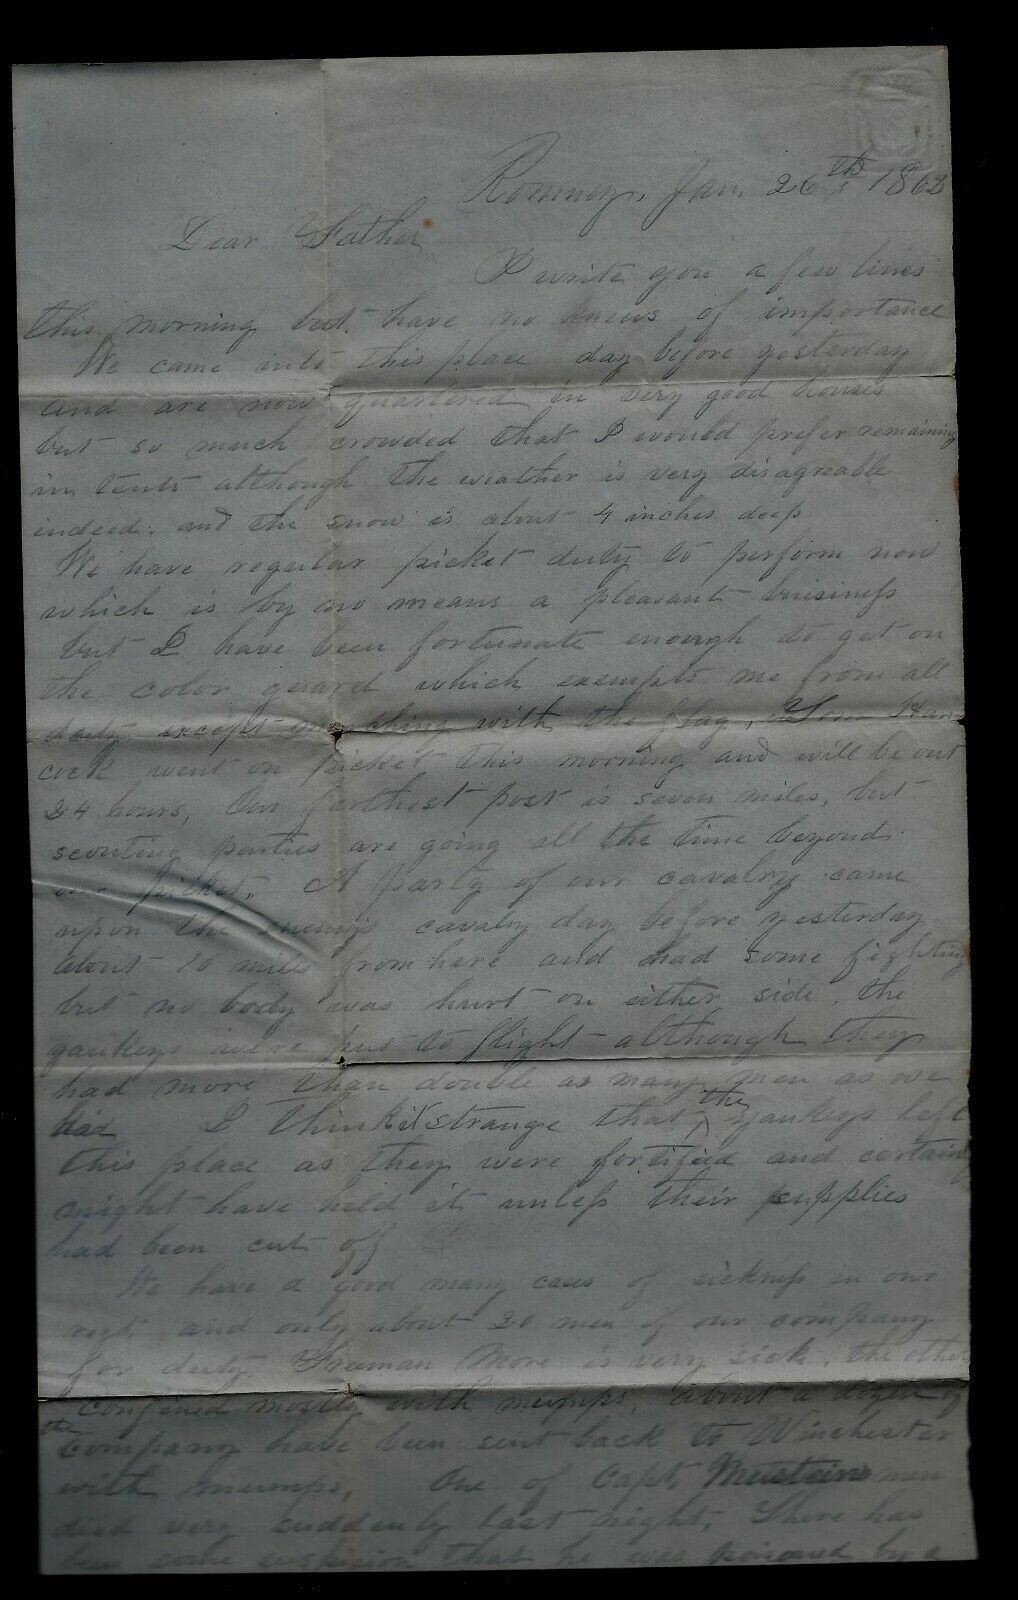 Romney, Jan. 26th 1862
Dear Father
I write you a few lines
this morning but have no knews of importance
We came into this place day before yesterday
and are now quartered in very good houses
but so much crowded that I would prefer remaining
in tents although the weather is very disagreable
indeed, and the snow is about 4 inches deep
We have regular picket duty to perform now
which is by no means a pleasant buisiness
but I have been fortunate enough to get on
the color guard which exempts me from all
duty except marching with the flag, Tom Han
cock went on picket this morning and will be out
24 hours, Our farthest post is seven miles, but
scouting parties are going all the time beyond
our picket, A party of our cavalry came
upon the enemys cavalry day before yesterday
about 10 miles from here and had some fighting
but no body was hurt on either side, the
yankeys were put to flight although they
had more than double as many men as we
had I think it strange that the yankeys left
this place as they were fortified and certainly
might have held it unless their supplies
had been cut off
We have a good many cases of sickness in our
regt and only about 20 men of our company
for duty, Freeman More is very sick, the other
confined mostly with mumps, about a dozen of
the company have been sent back to Winchester
with mumps, One of Capt. men
died very suddenly last night, There has
been some suspision that he was poisoned by a